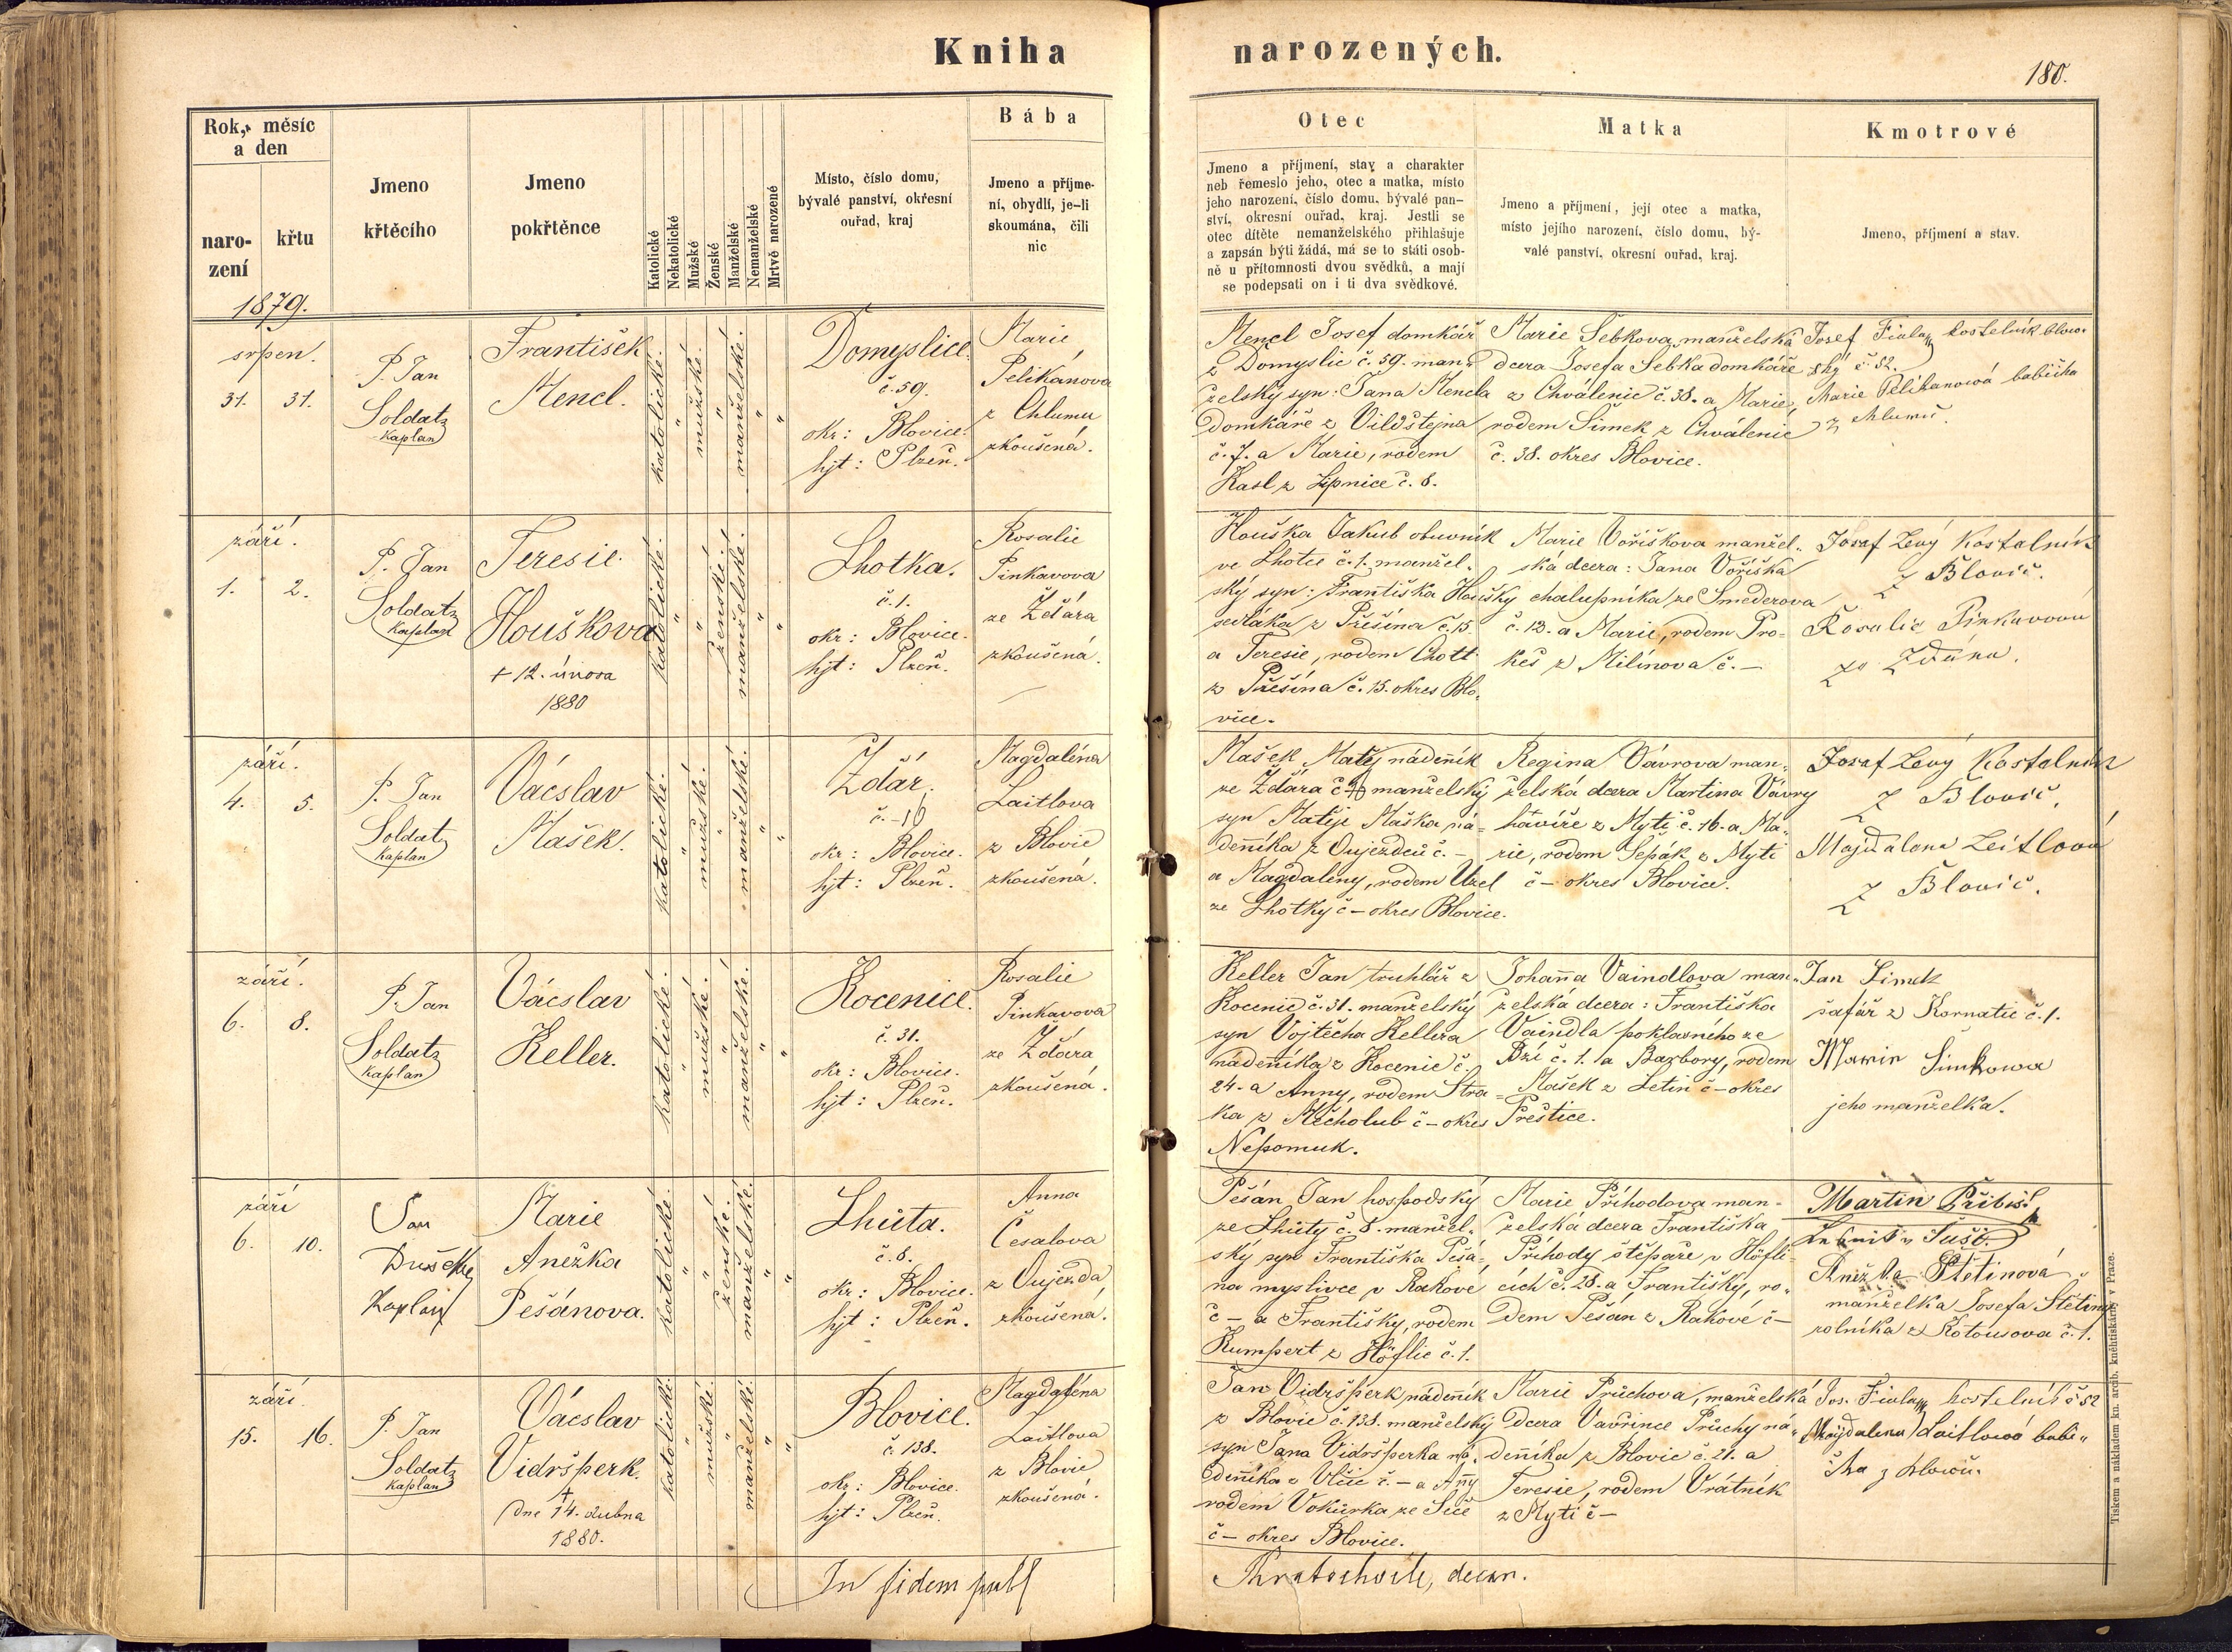 Kniha narozených.
180.
Rok, měsíc
a den
naro-
zení
křtu
Jmeno
křtěcího
Jmeno
pokřtěnce
Katolické
Nekatolické
Mužské
Ženské
Manželské
Nemanželské
Mrtvě narozené
Místo, číslo domu,
bývalé panství, okřesní
ouřad, kraj
Bába
Jmeno a příjme-
ní, obydlí, je-li
skoumána, čili
nic
Otec
Jmeno a příjmení, stav a charakter
neb řemeslo jeho, otec a matka, místo
jeho narození, číslo domu, bývalé pan-
ství, okresní ouřad, kraj. Jestli se
otec dítěte nemanželského přihlašuje
a zapsán býti žádá, má se to státi osob-
ně u přítomnosti dvou svědků, a mají
se podepsati on i ti dva svědkové.
Matka
Jmeno a příjmení, její otec a matka,
místo jejího narození, číslo domu, bý-
valé panství, okresní ouřad, kraj.
Kmotrové
Jmeno, příjmení a stav.
1879.
srpen.
31. 31.
P. Jan
Soldat
Kaplan
František
Mencl.
katolické.
"
mužské.
"
manželské.
"
"
Domyslice.
č. 59.
okr: Blovice.
hjt: Plzeň.
Marie
Pelikánova
z Chlumu
zkoušená.
Mencl Josef domkář
z Domyslic č. 59. man-
želský syn: Jana Mencla
domkáře z Vildštejna
č. 7. a Marie, rodem
Kasl z Lipnice č. 8.
Marie Šebkova, manželská
dcera Josefa Šebka domkáře
z Chválenic č. 38. a Marie,
rodem Šimek z Chválenic
č. 38. okres Blovice.
Josef Fiala kostelník blow-
ský č. 52.
Marie Pelikanowá babička
z Chlumu.
září.
1. 2.
P. Jan
Soldat
Kaplan
Teresie.
Houškova
+ 12. února
1880
katolické.
"
"
ženské.
manželské.
"
"
Lhotka.
č. 1.
okr: Blovice.
hjt: Plzeň.
Rosalie
Pinkavova
ze Žďára
zkoušená.
Houška Jakub obuvník
ve Lhotce č. 1. manžel-
ský syn: Františka Houšky
sedláka z Přešína č. 15.
a Teresie, rodem Chott
z Přešína č. 15. okres Blo-
vice.
Marie Voříškova manžel-
ská dcera: Jana Voříška
chalupníka ze Smederova
č. 13. a Marie, rodem Pro-
keš z Milínova č. –
Josef Levý Kostelník
z Blovic.
Rosalie Pinkavová
ze Zdára.
září.
4. 5.
P. Jan
Soldat
Kaplan
Vácslav
Mašek.
katolické.
"
mužské.
"
manželské.
"
"
Ždár.
č. – 16
okr: Blovice.
hjt: Plzeň.
Magdaléna
Laitlova
z Blovic
zkoušená.
Mašek Matěj nádenník
ze Ždára č. 16 manželský
syn Matěje Maška ná-
denníka z Oujezdců č. –
a Magdalény, rodem Uzel
ze Lhotky č – okres Blovice.
Regina Vávrova man-
želská dcera Martina Vávry
havíře z Mytí č. 16. a Ma-
rie, rodem Šepák z Mytí
č – okres Blovice.
Josef Levý Kostelník
z Blovic.
Majdalena Leitlová
z Blovic.
září.
6. 8.
P. Jan
Soldat
Kaplan
Vácslav
Keller.
katolické.
"
mužské.
"
manželské.
"
"
Kocenice.
č. 31.
okr: Blovice.
hjt: Plzeň.
Rosalie
Pinkavova
ze Žďára
zkoušená.
Keller Jan truhlář z
Kocenic č. 31. manželský
syn Vojtěcha Kellera
nádenníka z Kocenic č.
24. a Anny, rodem Stra-
ka z Měcholub č – okres
Nepomuk.
Johanna Vaindlova man-
želská dcera: Františka
Vaindla poklasného ze
Bzí č. 1. a Barbory, rodem
Mašek z Letin č – okres
Přeštice.
Jan Šimek
šafář z Kornatic č. 1.
Marie Simkowa
jeho manželka.
září
6. 10.
Jan
Dušek
Kaplan
Marie
Anežka
Pešánova.
katolické.
"
"
ženské.
manželské.
"
"
Lhůta.
č. 8.
okr: Blovice.
hjt: Plzeň.
Anna
Česalova
z Oujezda
zkoušená.
Pešán Jan hospodský
ze Lhůty č. 8. manžel-
ský syn Františka Pešá-
na myslivce v Rakové
č – a Františky, rodem
Kumpert z Höflic č. 1.
Marie Příhodova man-
želská dcera Františka
Příhody štěpaře v Höfli-
cích č. 28. a Františky, ro-
dem Pešan z Rakové č –
Martin Přibiš
Anežka Štětinová
manželka Josefa Štětiny
rolníka z Kotousova č. 1.
září.
15. 16.
P. Jan
Soldat
Kaplan
Vácslav
Vidršperk.
+
dne 14. dubna
1880.
katolické.
"
mužské.
"
manželské.
"
"
Blovice.
č. 138.
okr: Blovice.
hjt: Plzeň.
Magdaléna
Laitlova
z Blovic
zkoušená.
Jan Vidršperk, nádenník
z Blovic č. 138. manželský
syn Jana Vidršperka ná-
denníka z Vlčic č. – a Anny
rodem Vokurka ze Sičé
č – okres Blovice.
Marie Průchova, manželská
dcera Vavřince Průchy ná-
denníka z Blovic č. 21. a
Teresie, rodem Vrátník
z Mytí č –
Jos. Fiala kostelník č 52
Majdalena Laitlowá babi-
čka z Blowic.
In fidem
decan.
Tiskem a nákladem kn. arcib. knihtiskárny v Praze.